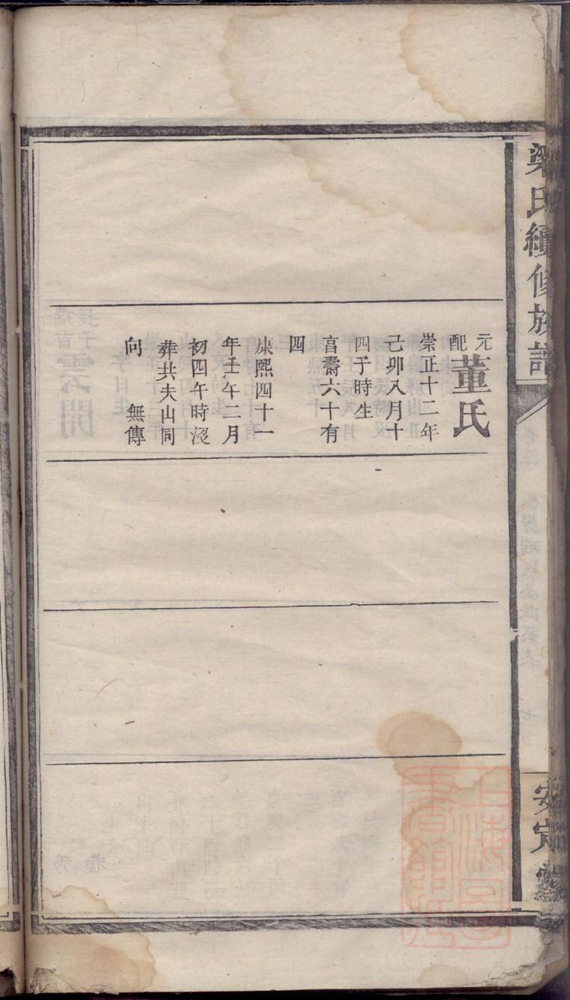 梁氏續修族譜
元配董氏
崇正十二年
己卯八月十
四子時生
享壽六十有
四
康熙四十一
年壬午年二月
初四午時沒
葬共夫山同
向　無傳
安定堂